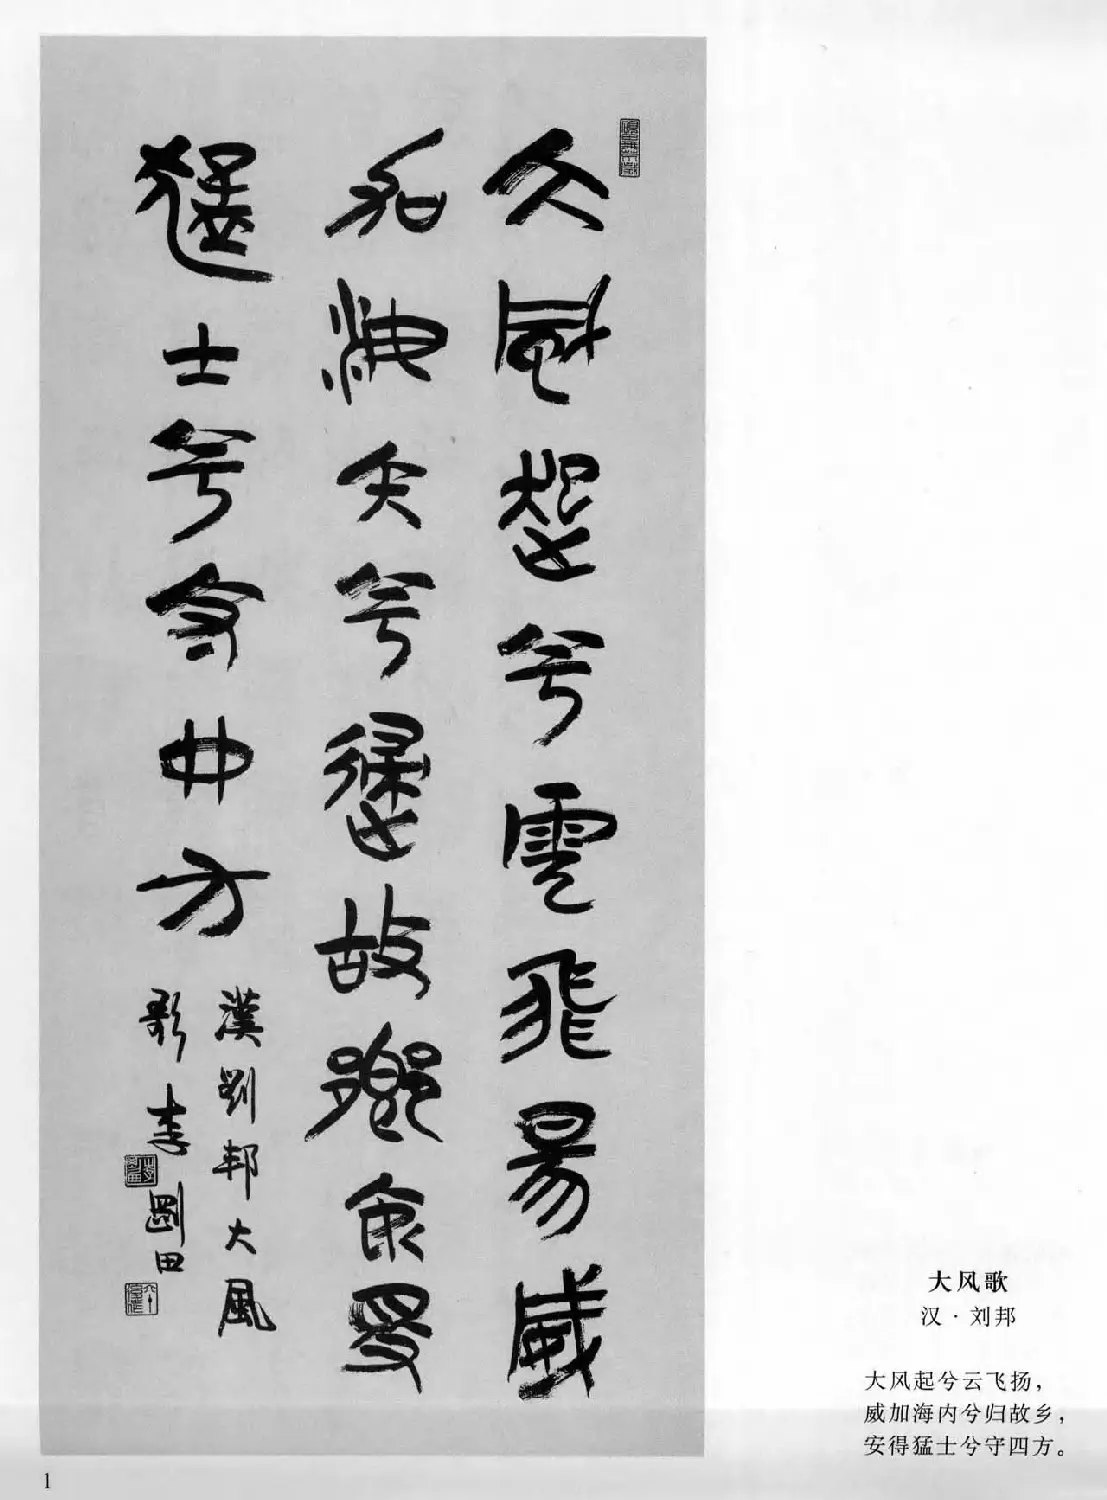 大風起兮雲飛昜威
加海内兮歸故鄉安㝵
猛士兮守四方
漢劉邦大風
歌李剛田
大风歌
汉·刘邦
大风起兮云飞扬，
威加海内兮归故乡，
安得猛士兮守四方。
1